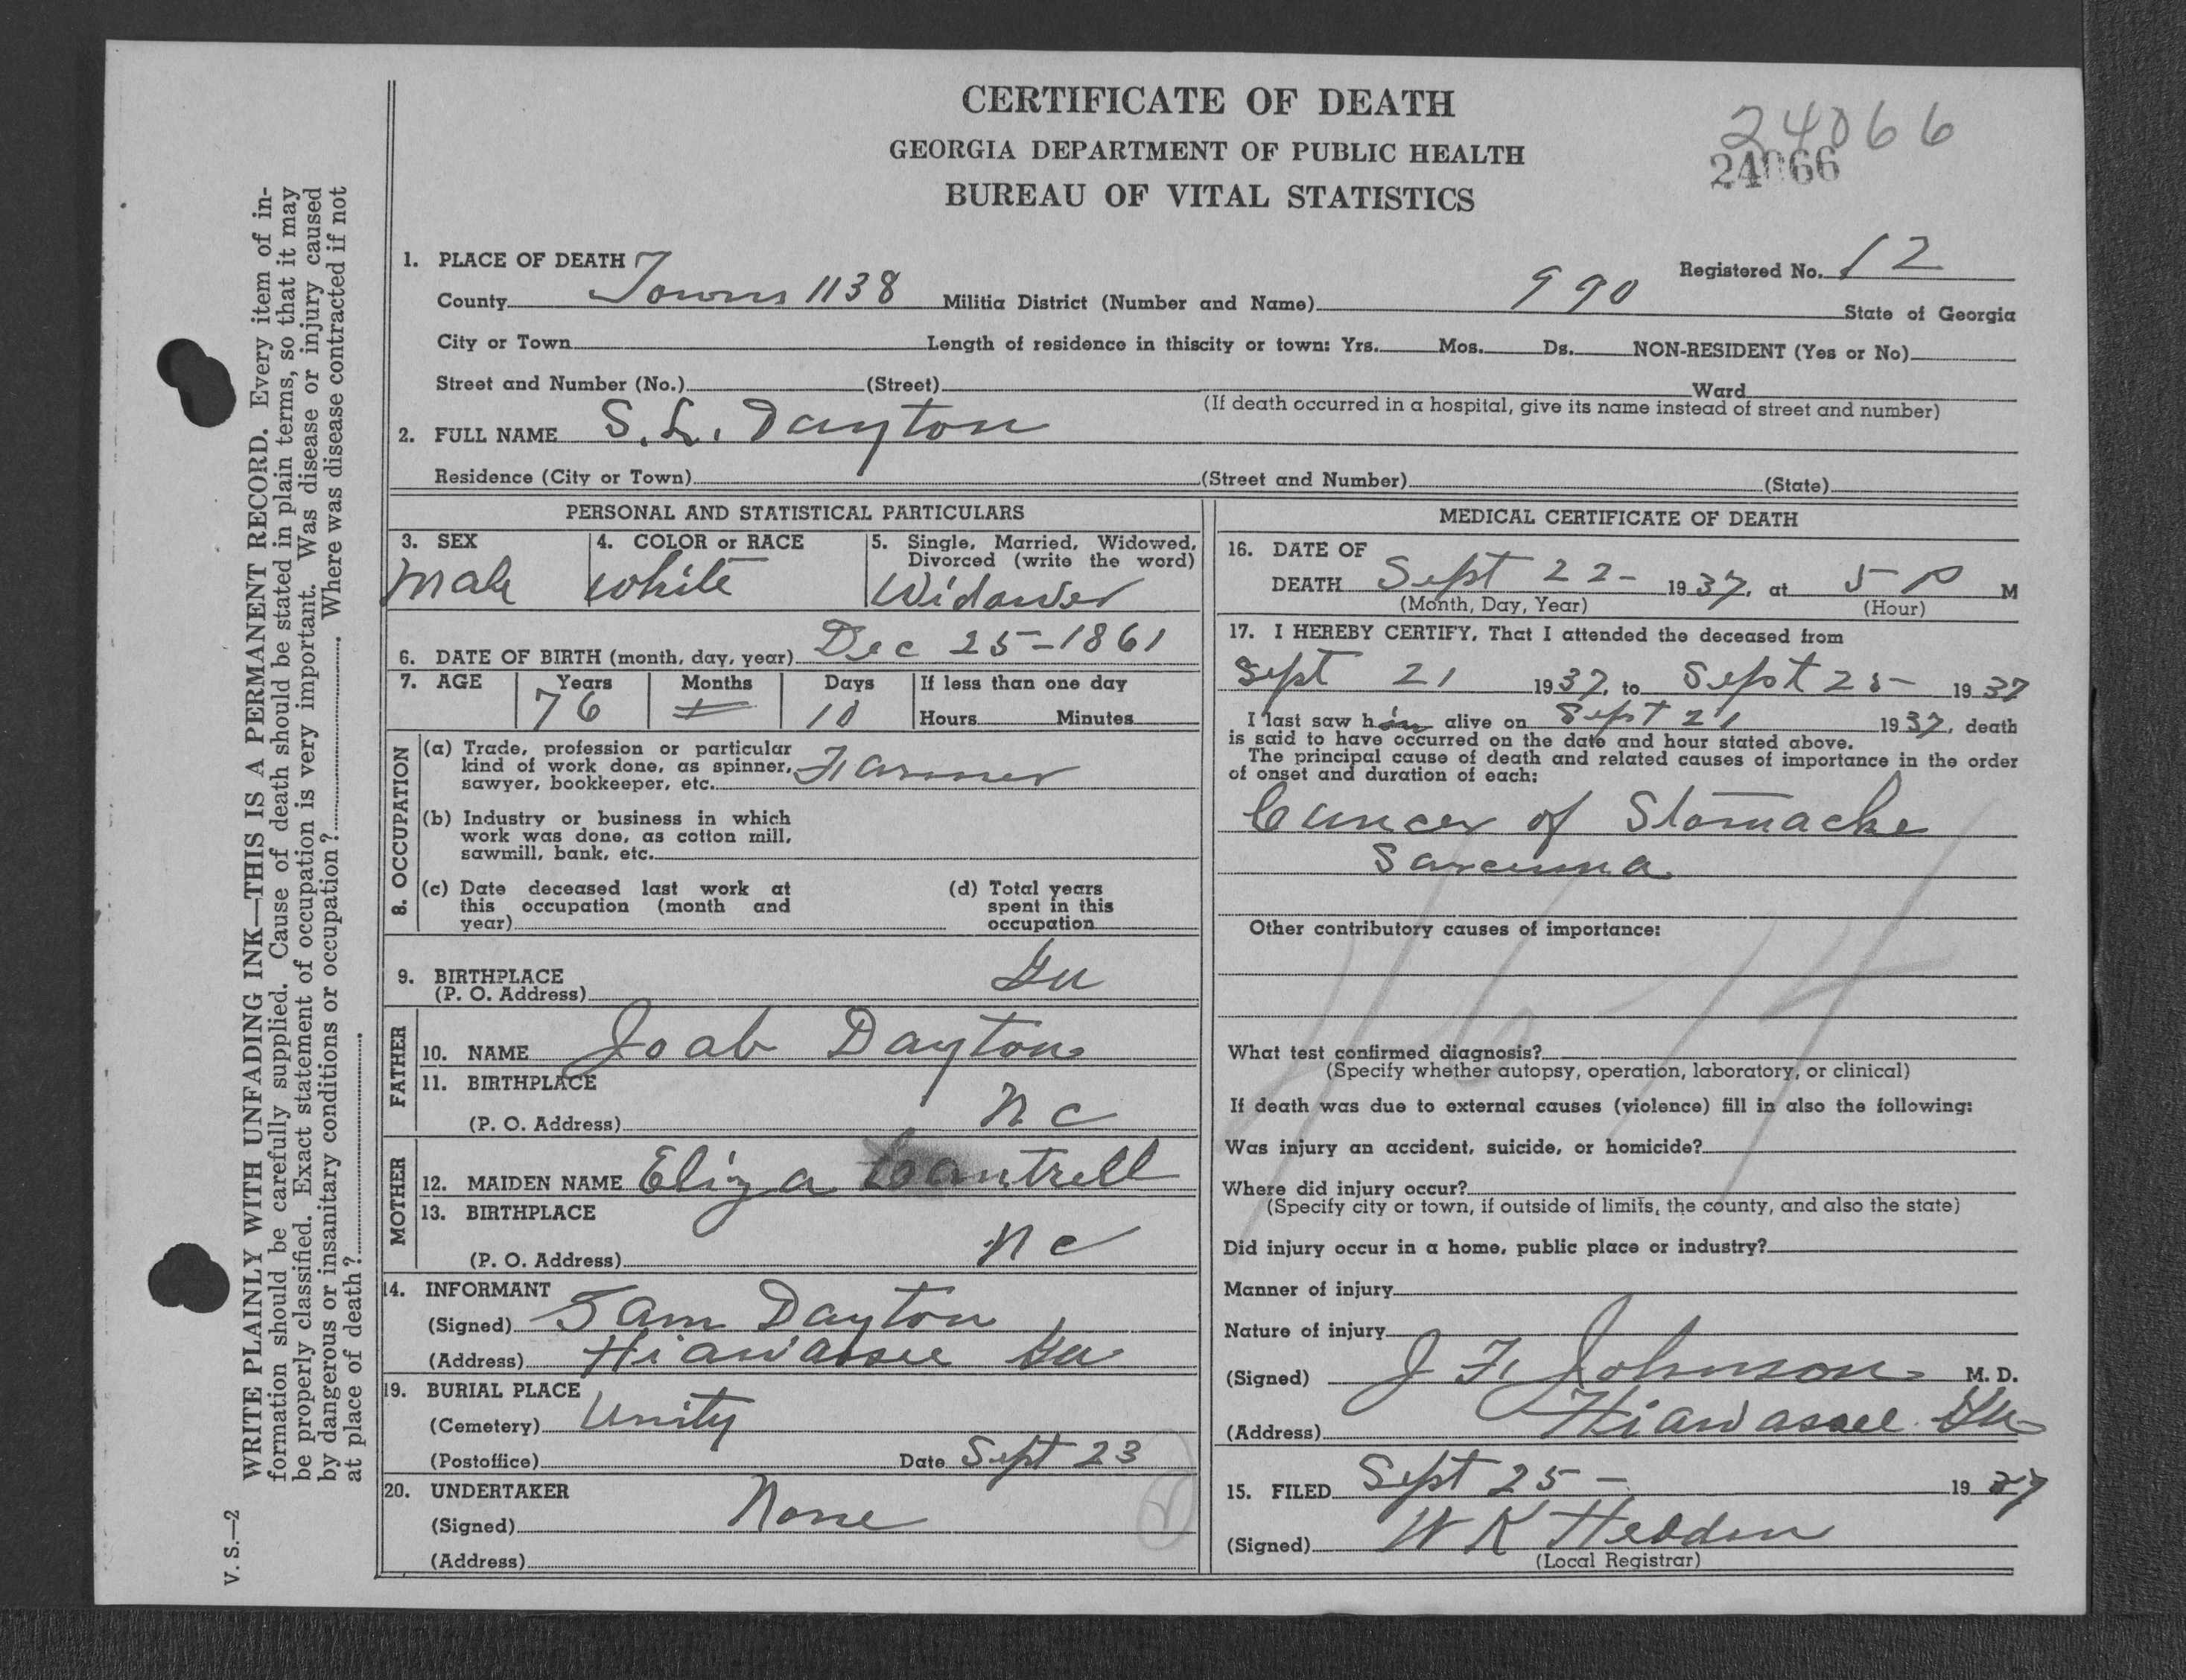 CERTIFICATE OF DEATH
GEORGIA DEPARTMENT OF PUBLIC HEALTH
BUREAU OF VITAL STATISTICS
24066
24066
Registered No. 12
1. PLACE OF DEATH
County Towns 1138 Militia District (Number and Name) 990 State of Georgia
City or Town Length of residence in thiscity or town: Yrs. Mos. Ds. NON-RESIDENT (Yes or No)
Street and Number (No.) (Street) Ward
(If death occurred in a hospital, give its name instead of street and number)
2. FULL NAME S. L. Dayton
Residence (City or Town) (Street and Number) (State)
PERSONAL AND STATISTICAL PARTICULARS
3. SEX 4. COLOR or RACE 5. Single, Married, Widowed,
Divorced (write the word)
Male White Widower
6. DATE OF BIRTH (month, day, year) Dec 25-1861
7. AGE Years Months Days If less than one day
76 10 Hours Minutes
8. OCCUPATION
(a) Trade, profession or particular
kind of work done, as spinner, Farmer
sawyer, bookkeeper, etc.
(b) Industry or business in which
work was done, as cotton mill,
sawmill, bank, etc.
(c) Date deceased last work at (d) Total years
this occupation (month and spent in this
year) occupation
9. BIRTHPLACE Ga
(P. O. Address)
FATHER
10. NAME Joab Dayton
11. BIRTHPLACE
(P. O. Address) N C
MOTHER
12. MAIDEN NAME Eliza Cantrell
13. BIRTHPLACE
(P. O. Address) N C
14. INFORMANT
(Signed) Sam Dayton
(Address) Hiawassee Ga
19. BURIAL PLACE
(Cemetery) Unity
(Postoffice) Date Sept 23
20. UNDERTAKER
(Signed) None
(Address)
MEDICAL CERTIFICATE OF DEATH
16. DATE OF
DEATH Sept 22- 1937, at 5 P M
(Month, Day, Year) (Hour)
17. I HEREBY CERTIFY, That I attended the deceased from
Sept 21 1937, to Sept 25 1937
I last saw him alive on Sept 21 1937, death
is said to have occurred on the date and hour stated above.
The principal cause of death and related causes of importance in the order
of onset and duration of each:
Cancer of Stomache
Sarcuma
Other contributory causes of importance:
What test confirmed diagnosis?
(Specify whether autopsy, operation, laboratory, or clinical)
If death was due to external causes (violence) fill in also the following:
Was injury an accident, suicide, or homicide?
Where did injury occur?
(Specify city or town, if outside of limits, the county, and also the state)
Did injury occur in a home, public place or industry?
Manner of injury
Nature of injury
(Signed) J. F. Johnson M. D.
(Address) Hiawassee Ga
15. FILED Sept 25- 1937
(Signed) W K Hedden
(Local Registrar)
WRITE PLAINLY WITH UNFADING INK—THIS IS A PERMANENT RECORD. Every item of in-
formation should be carefully supplied. Cause of death should be stated in plain terms, so that it may
be properly classified. Exact statement of occupation is very important. Was disease or injury caused
by dangerous or insanitary conditions or occupation? Where was disease contracted if not
at place of death?
V. S.—2